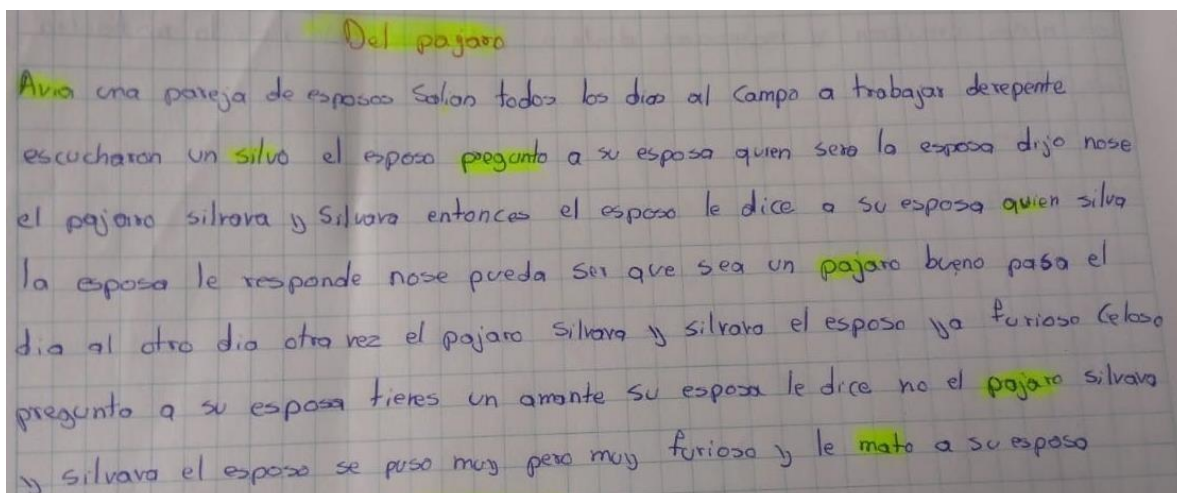 Del pajaro
Avia una pareja de esposos Salian todos los dias al Campo a trabajar derepente
escucharon un silvo el esposo pregunto a su esposa quien sera la esposa dijo nose
el pajaro silvava y Silvava entonces el esposo le dice a su esposa quien silva
la esposa le responde nose pueda ser que sea un pajaro bueno pasa el
dia al otro dia otra vez el pajaro Silvava y silvava el esposo ya furioso Celoso
pregunto a su esposa tienes un amante su esposa le dice no el pajaro silvava
y silvava el esposo se puso muy pero muy furioso y le mato a su esposa